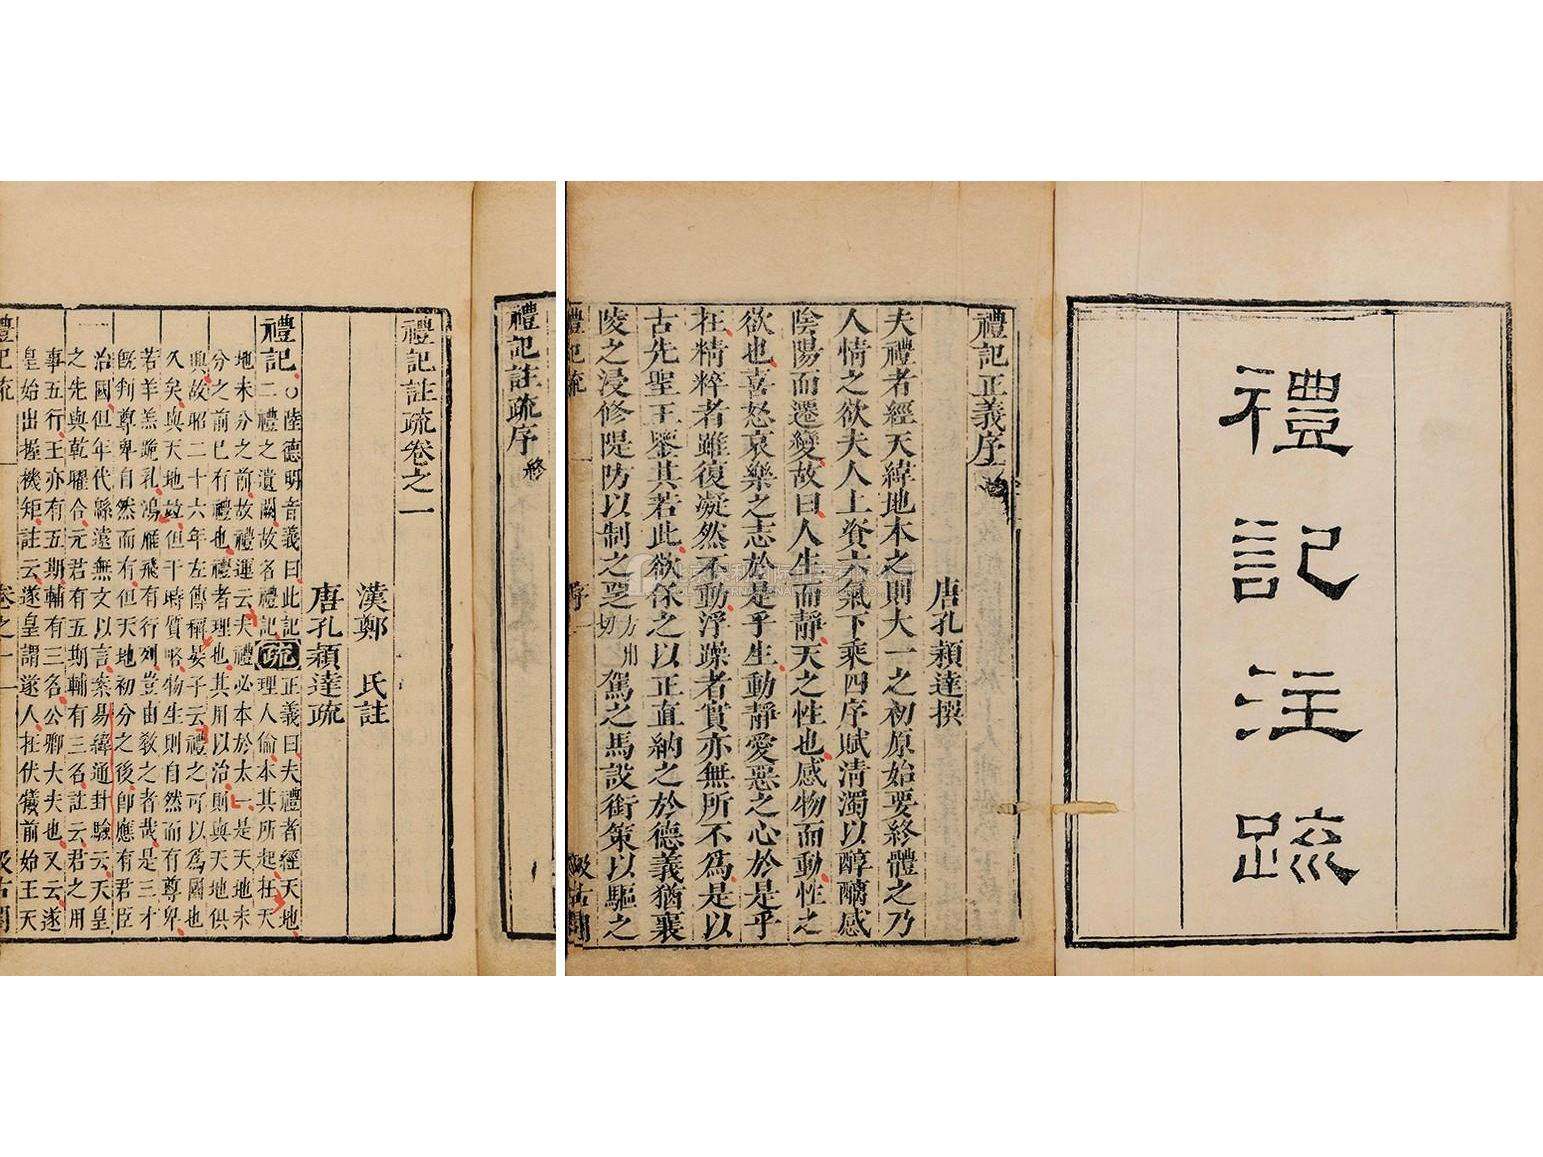 禮記注疏
禮記正義序
唐孔穎達撰
夫禮者經天緯地本之則大一之初原始要終體之乃
人情之欲夫人上資六氣下乘四序賦清濁以醇醨感
陰陽而遷變故曰人生而靜天之性也感物而動性之
欲也喜怒哀樂之志於是乎生動靜愛惡之心於是乎
在精粹者雖復凝然不動浮躁者實亦無所不為是以
古先聖王鑒其若此欲保之以正直納之於德義猶襄
陵之浸修隄防以制之覂方用切駕之馬設銜策以驅之
禮記疏 序 一 汲古閣
禮記註疏序終
禮記註疏卷之一
漢鄭 氏註
唐孔穎達疏
禮記。陸德明音義曰此記
二禮之遺闕故名禮記疏正義曰夫禮者經天地
理人倫本其所起在天
地未分之前故禮運云夫禮必本於太一是天地未
分之前已有禮也禮者理也其用以治則與天地俱
興故昭二十六年左傳稱晏子云禮之可以為國也
久矣與天地並但于時質略物生則自然而有尊卑
若羊羔跪乳鴻雁飛有行列豈由教之者哉是三才
既判尊卑自然而有但天地初分之後即應有君臣
治國但年代緜遠無文以言案易緯通卦驗云天皇
之先與乾曜合元君有五期輔有三名註云君之用
事五行王亦有五期輔有三名公卿大夫也又云遂
皇始出握機矩註云遂皇謂遂人在伏犧前始王天
禮記疏 卷之一 一 汲古閣